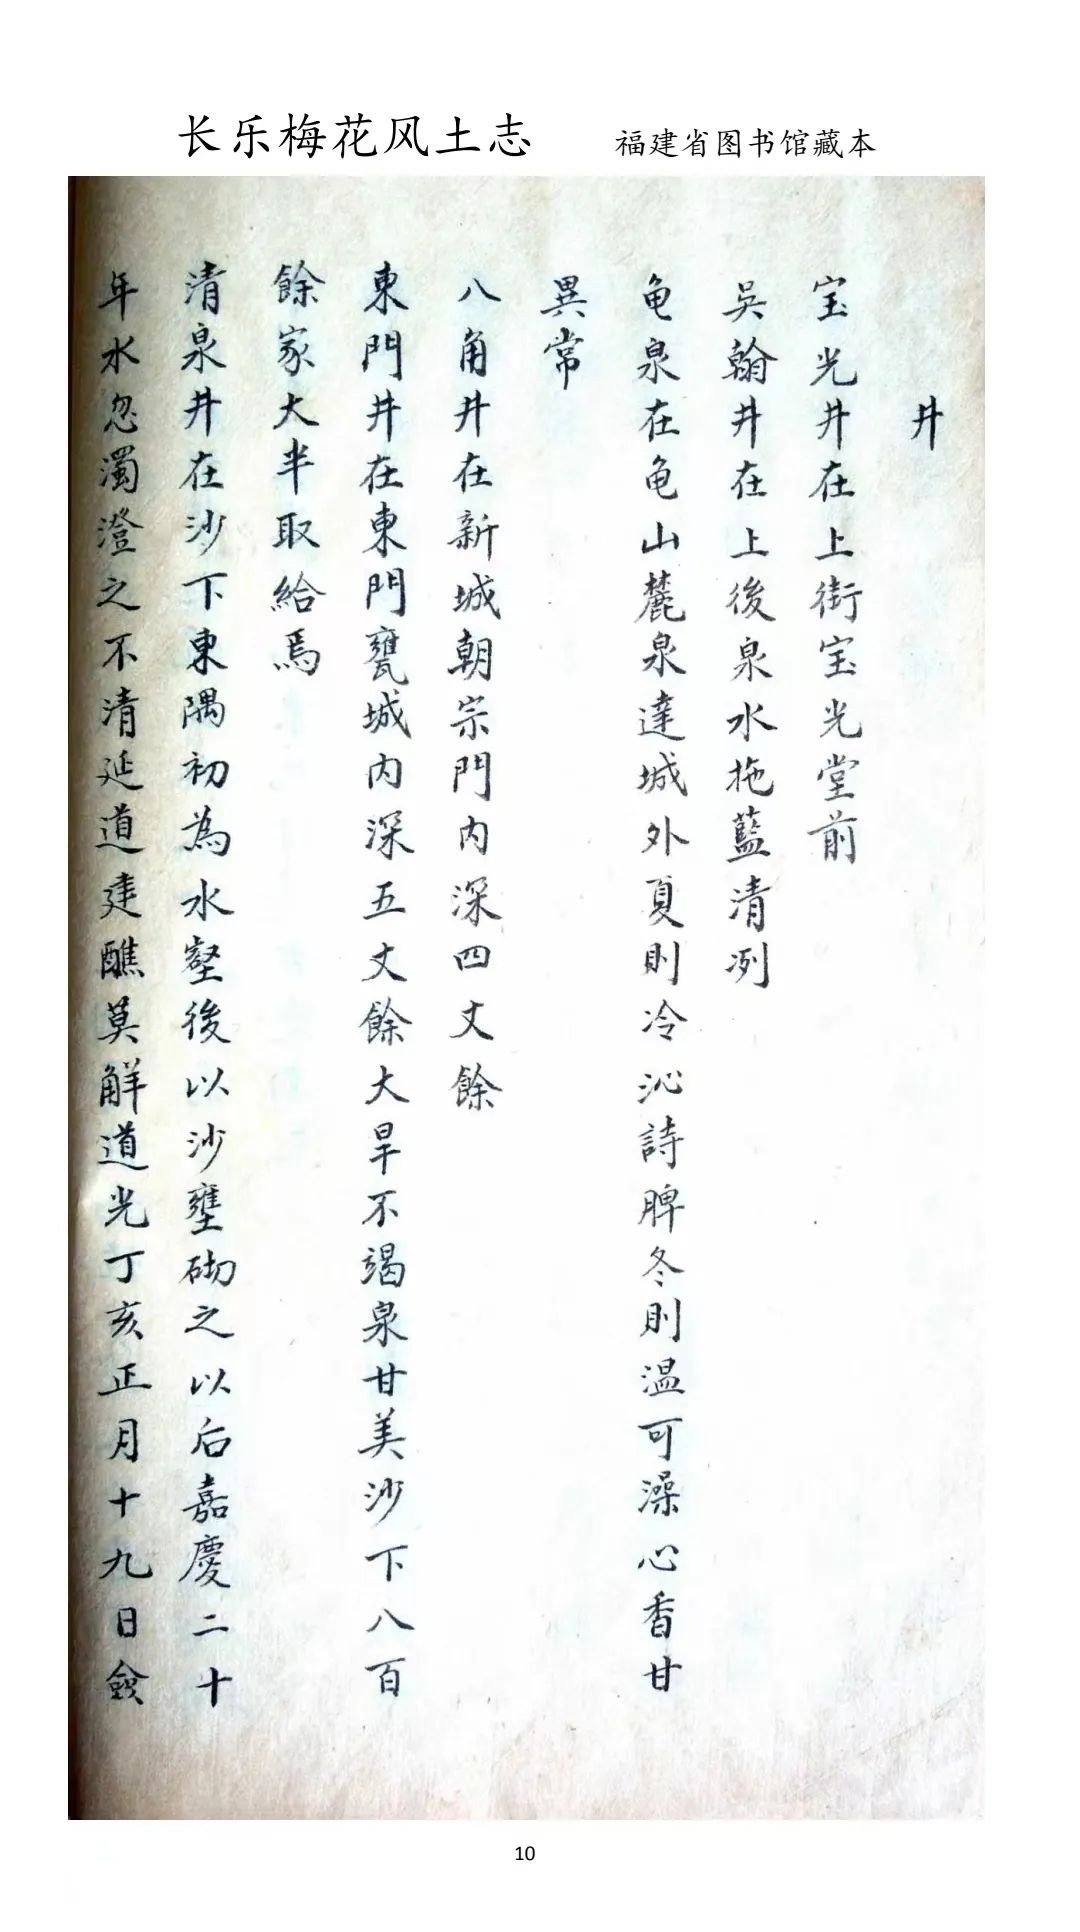 长乐梅花风土志 福建省图书馆藏本
井
宝光井在上街宝光堂前
吳翰井在上後泉水拖藍清冽
龟泉在龟山麓泉達城外夏則冷沁詩脾冬則温可澡心香甘
異常
八角井在新城朝宗門内深四丈餘
東門井在東門甕城内深五丈餘大旱不竭泉甘美沙下八百
餘家大半取給焉
清泉井在沙下東隅初為水壑後以沙壅砌之以后嘉慶二十
年水忽濁澄之不清延道建醮莫解道光丁亥正月十九日僉
10